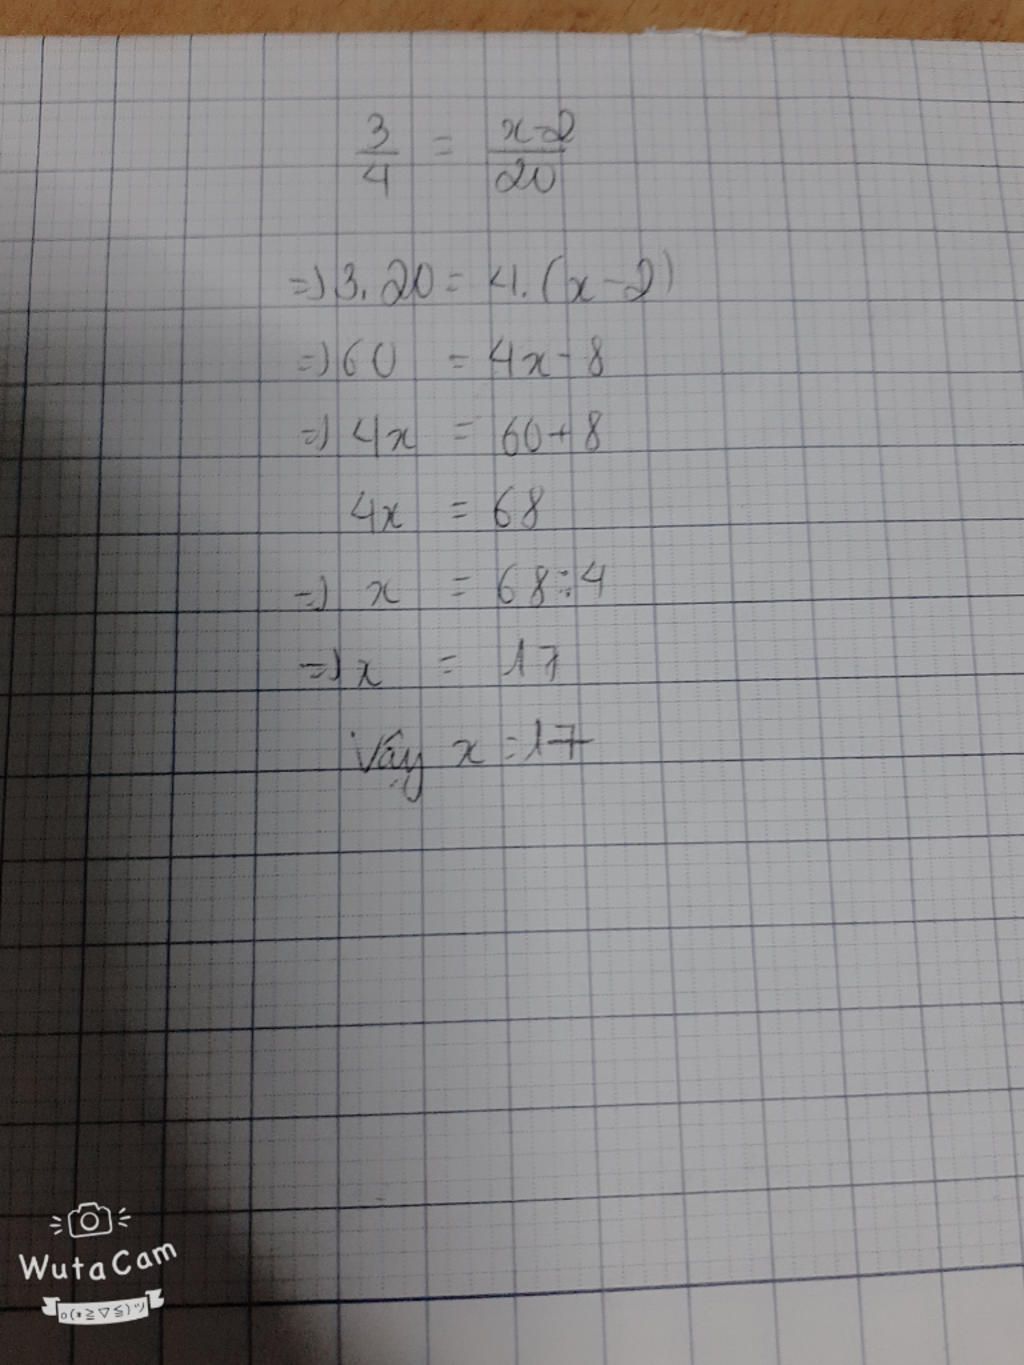 3/4 = x-2/20
=> 3.20 = 4.(x-2)
=> 60 = 4x-8
=> 4x = 60+8
4x = 68
=> x = 68:4
=> x = 17
Vậy x = 17
WutaCam
o(*≧▽≦)ツ